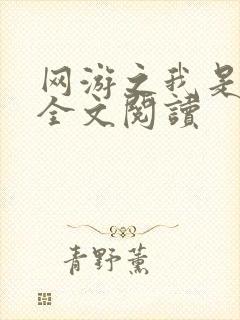 网游之我是
全文閱讀
青野薰